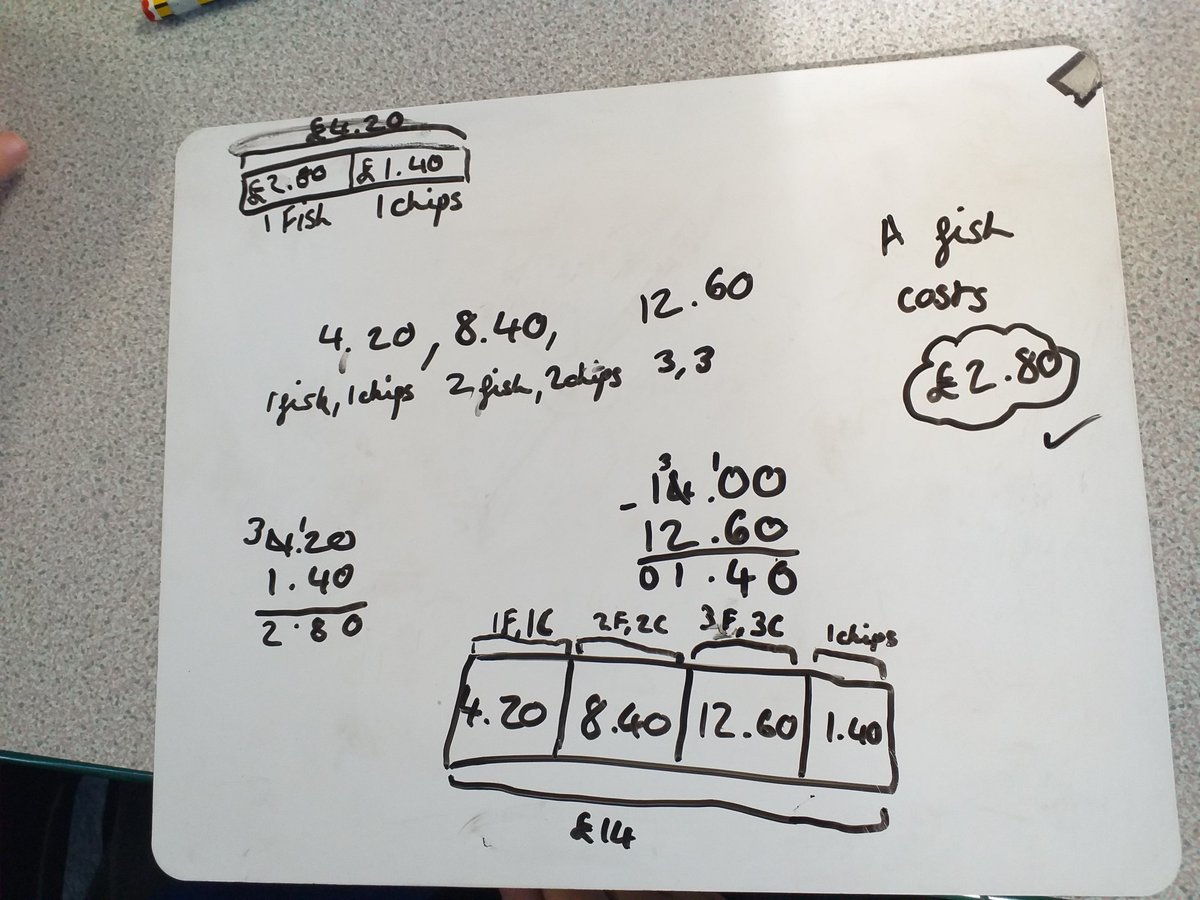 £4.20
£2.80 £1.40
1 Fish 1 chips
A fish
costs
£2.80
4.20, 8.40, 12.60
1 fish, 1 chips 2 fish, 2 chips 3, 3
3 4.120
1.40
2.80
3 1
- 14.00
12.60
01.40
1F, 1C 2F, 2C 3F, 3C 1 chips
4.20 8.40 12.60 1.40
£14